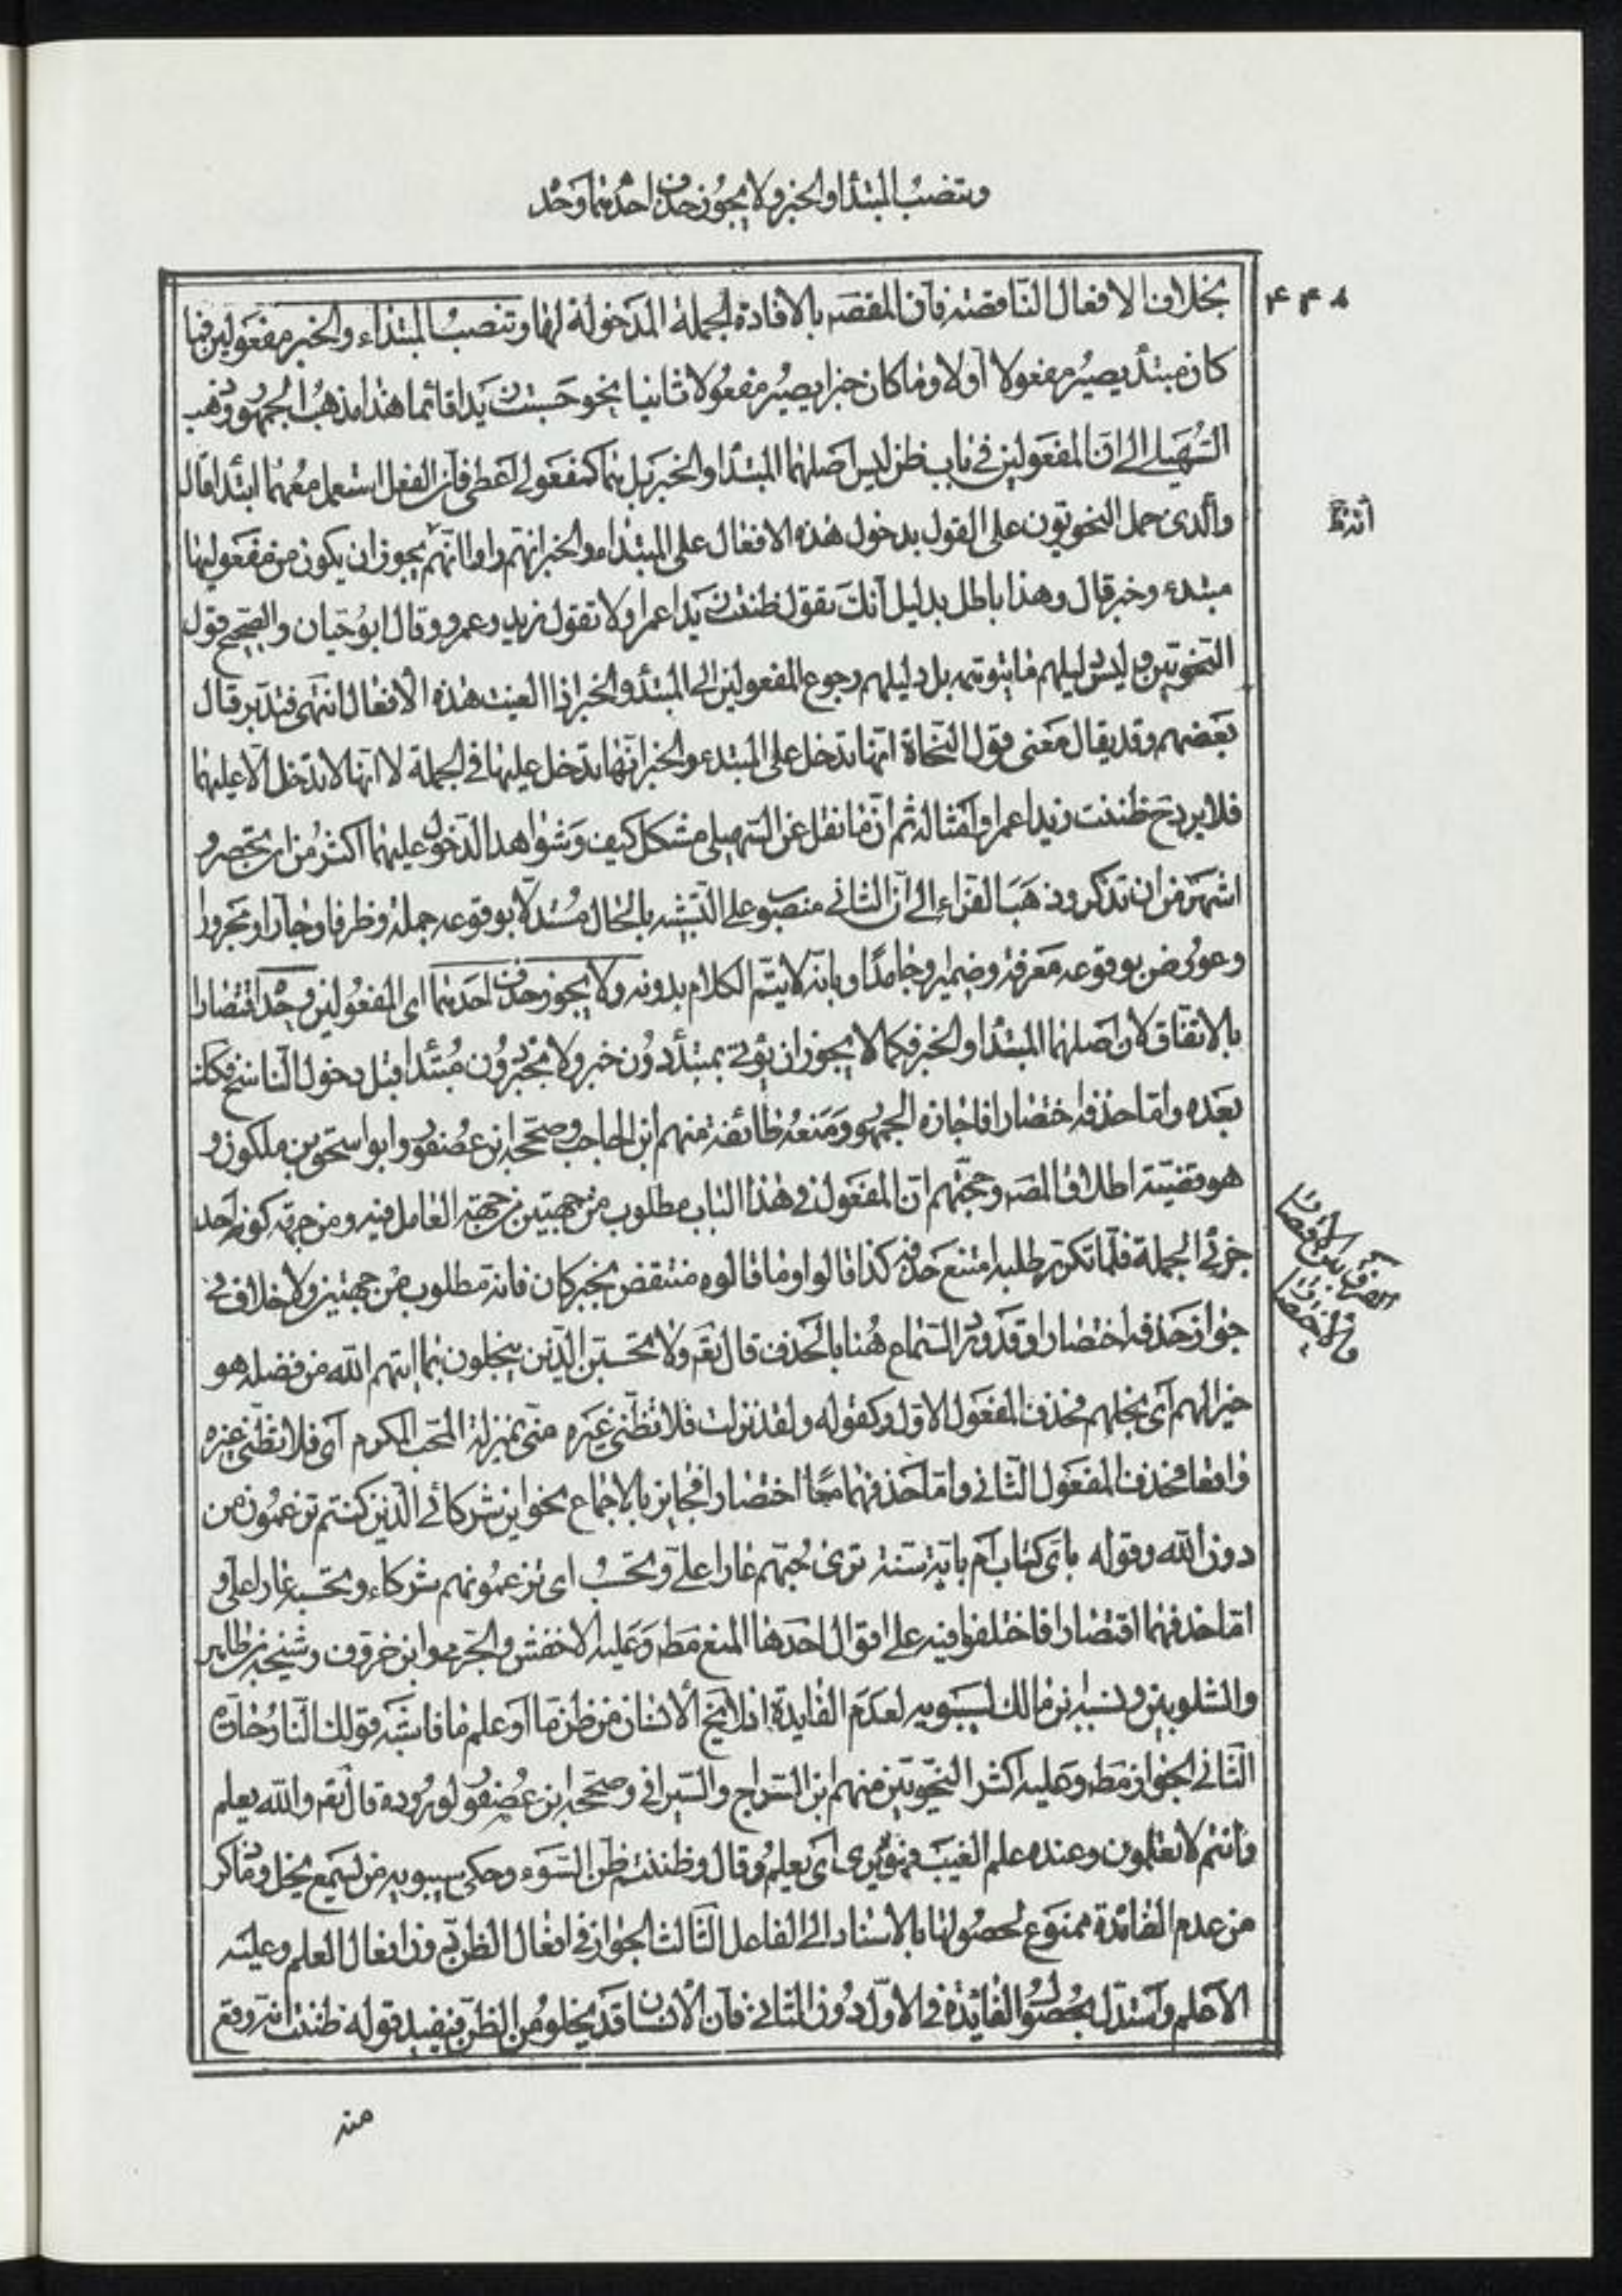 وتنصب المبتدأ والخبر ولا يجوز حذف احدهما وحد
٤٣٨
بخلاف الافعال الناقصة فان المقصد بالافادة الجملة المدخولة لها وتنصب المبتداء والخبر مفعولين فما
كان مبتدأ يصير مفعولا أولا وما كان خبرا يصير مفعولا ثانيا نحو حسبت زيدا قائما هذا مذهب الجمهور وذهب
السهيلي الى ان المفعولين في باب ظن ليس اصلهما المبتدا والخبر بل هما كمفعولي اعطى فان الفعل استعمل معهما ابتدا قال
والذى حمل النحويون على القول بدخول هذه الافعال على المبتدا والخبر انهم راوا انهم يجوز ان يكون من مفعوليها
مبتدء وخبر قال وهذا باطل بدليل انك تقول ظننت زيدا عمرا ولا تقول زيد عمرو وقال ابوحيان والصحيح قول
النحويين وليس دليلهم ما يتوهم بل دليلهم رجوع المفعولين الى المبتدأ والخبر اذا الغيت هذه الافعال انتهى فتدبر قال
بعضهم وقد يقال معنى قول النحاة انها تدخل على المبتدء والخبر انها تدخل عليها في الجملة لا انها لا تدخل الا عليهما
فلا يرد ح ظننت زيدا عمرا وامثاله ثم ان ما نقل عن السهيلي مشكل كيف وشواهد الدخول عليهما اكثر من ان تحصر و
اشهر من ان تذكر وذهب الفراء الى ان الثاني منصوب على التشبيه بالحال مستدلا بوقوعه جملة وظرفا وجارا ومجرورا
وعورض بوقوعه معرفة وضمير وجامدا وبانه لا يتم الكلام بدونه ولا يجوز حذف احدهما اى المفعولين وحد اقتصارا
بالاتفاق لان اصلهما المبتدا والخبر فكما لا يجوز ان يؤتى بمبتدأ دون خبر ولا بخبر دون مبتدا قبل دخول الناسخ فكذا
بعده واما حذفه اختصارا فاجازه الجمهور ومنعه طائفة منهم ابن الحاجب وصححه ابن عصفور وابو اسحق بن ملكون و
هو قضية اطلاق المصـ وحجتهم ان المفعول في هذا الباب مطلوب من جهتين من جهة العامل فيه ومن جهة كونه احد
جزئى الجملة فلما تكرر طلبه امتنع حذفه كذا قالوا وما قالوه منتقض بخبر كان فانه مطلوب من جهتين ولا خلاف في
جواز حذفه اختصارا وقد ورد السماع هنا بالحذف قال تعـ ولا تحسبن الذين يبخلون بما اتيهم الله من فضله هو
خيرا لهم اى بخلهم فحذف المفعول الاول وكقوله ولقد نزلت فلا تظنى غيره منى بمنزلة المحب المكرم اى فلا تظنى غيره
واقعا فحذف المفعول الثاني واما حذفهما معا اختصارا فجايز بالاجماع نحو اين شركائى الذين كنتم تزعمون من
دون الله وقوله باى كتاب ام باية سنة ترى حبهم عارا على وتحسب اى تزعمونهم شركاء وتحسبه عارا على و
اما حذفهما اقتصارا فاختلفوا فيه على اقوال احدها المنع مطـ وعليه الاخفش والجرمي وابن خروف وشيخه بن طاهر
والشلوبين ونسبه بن مالك لسيبويه لعدم الفايدة اذ لا يخ الانسان من ظن ما او علم ما فاشبه قولك النار حارة
الثاني الجواز مطـ وعليه اكثر النحويين منهم ابن السراج والسيرافي وصححه ابن عصفور لوروده قال تعـ والله يعلم
وانتم لا تعلمون وعنده علم الغيب فهو يرى اى يعلم وقال وظننتم ظن السوء وحكى سيبويه من يسمع يخل وما ذكر
من عدم الفائدة ممنوع لحصولها بالاسناد الى الفاعل الثالث الجواز في افعال الظن دون افعال العلم وعليه
الاعلم واستدل بحصول الفايدة في الاول دون الثاني فان الانسان قد يخلو من الظن فيفيد قوله ظننت انه وقع
منه